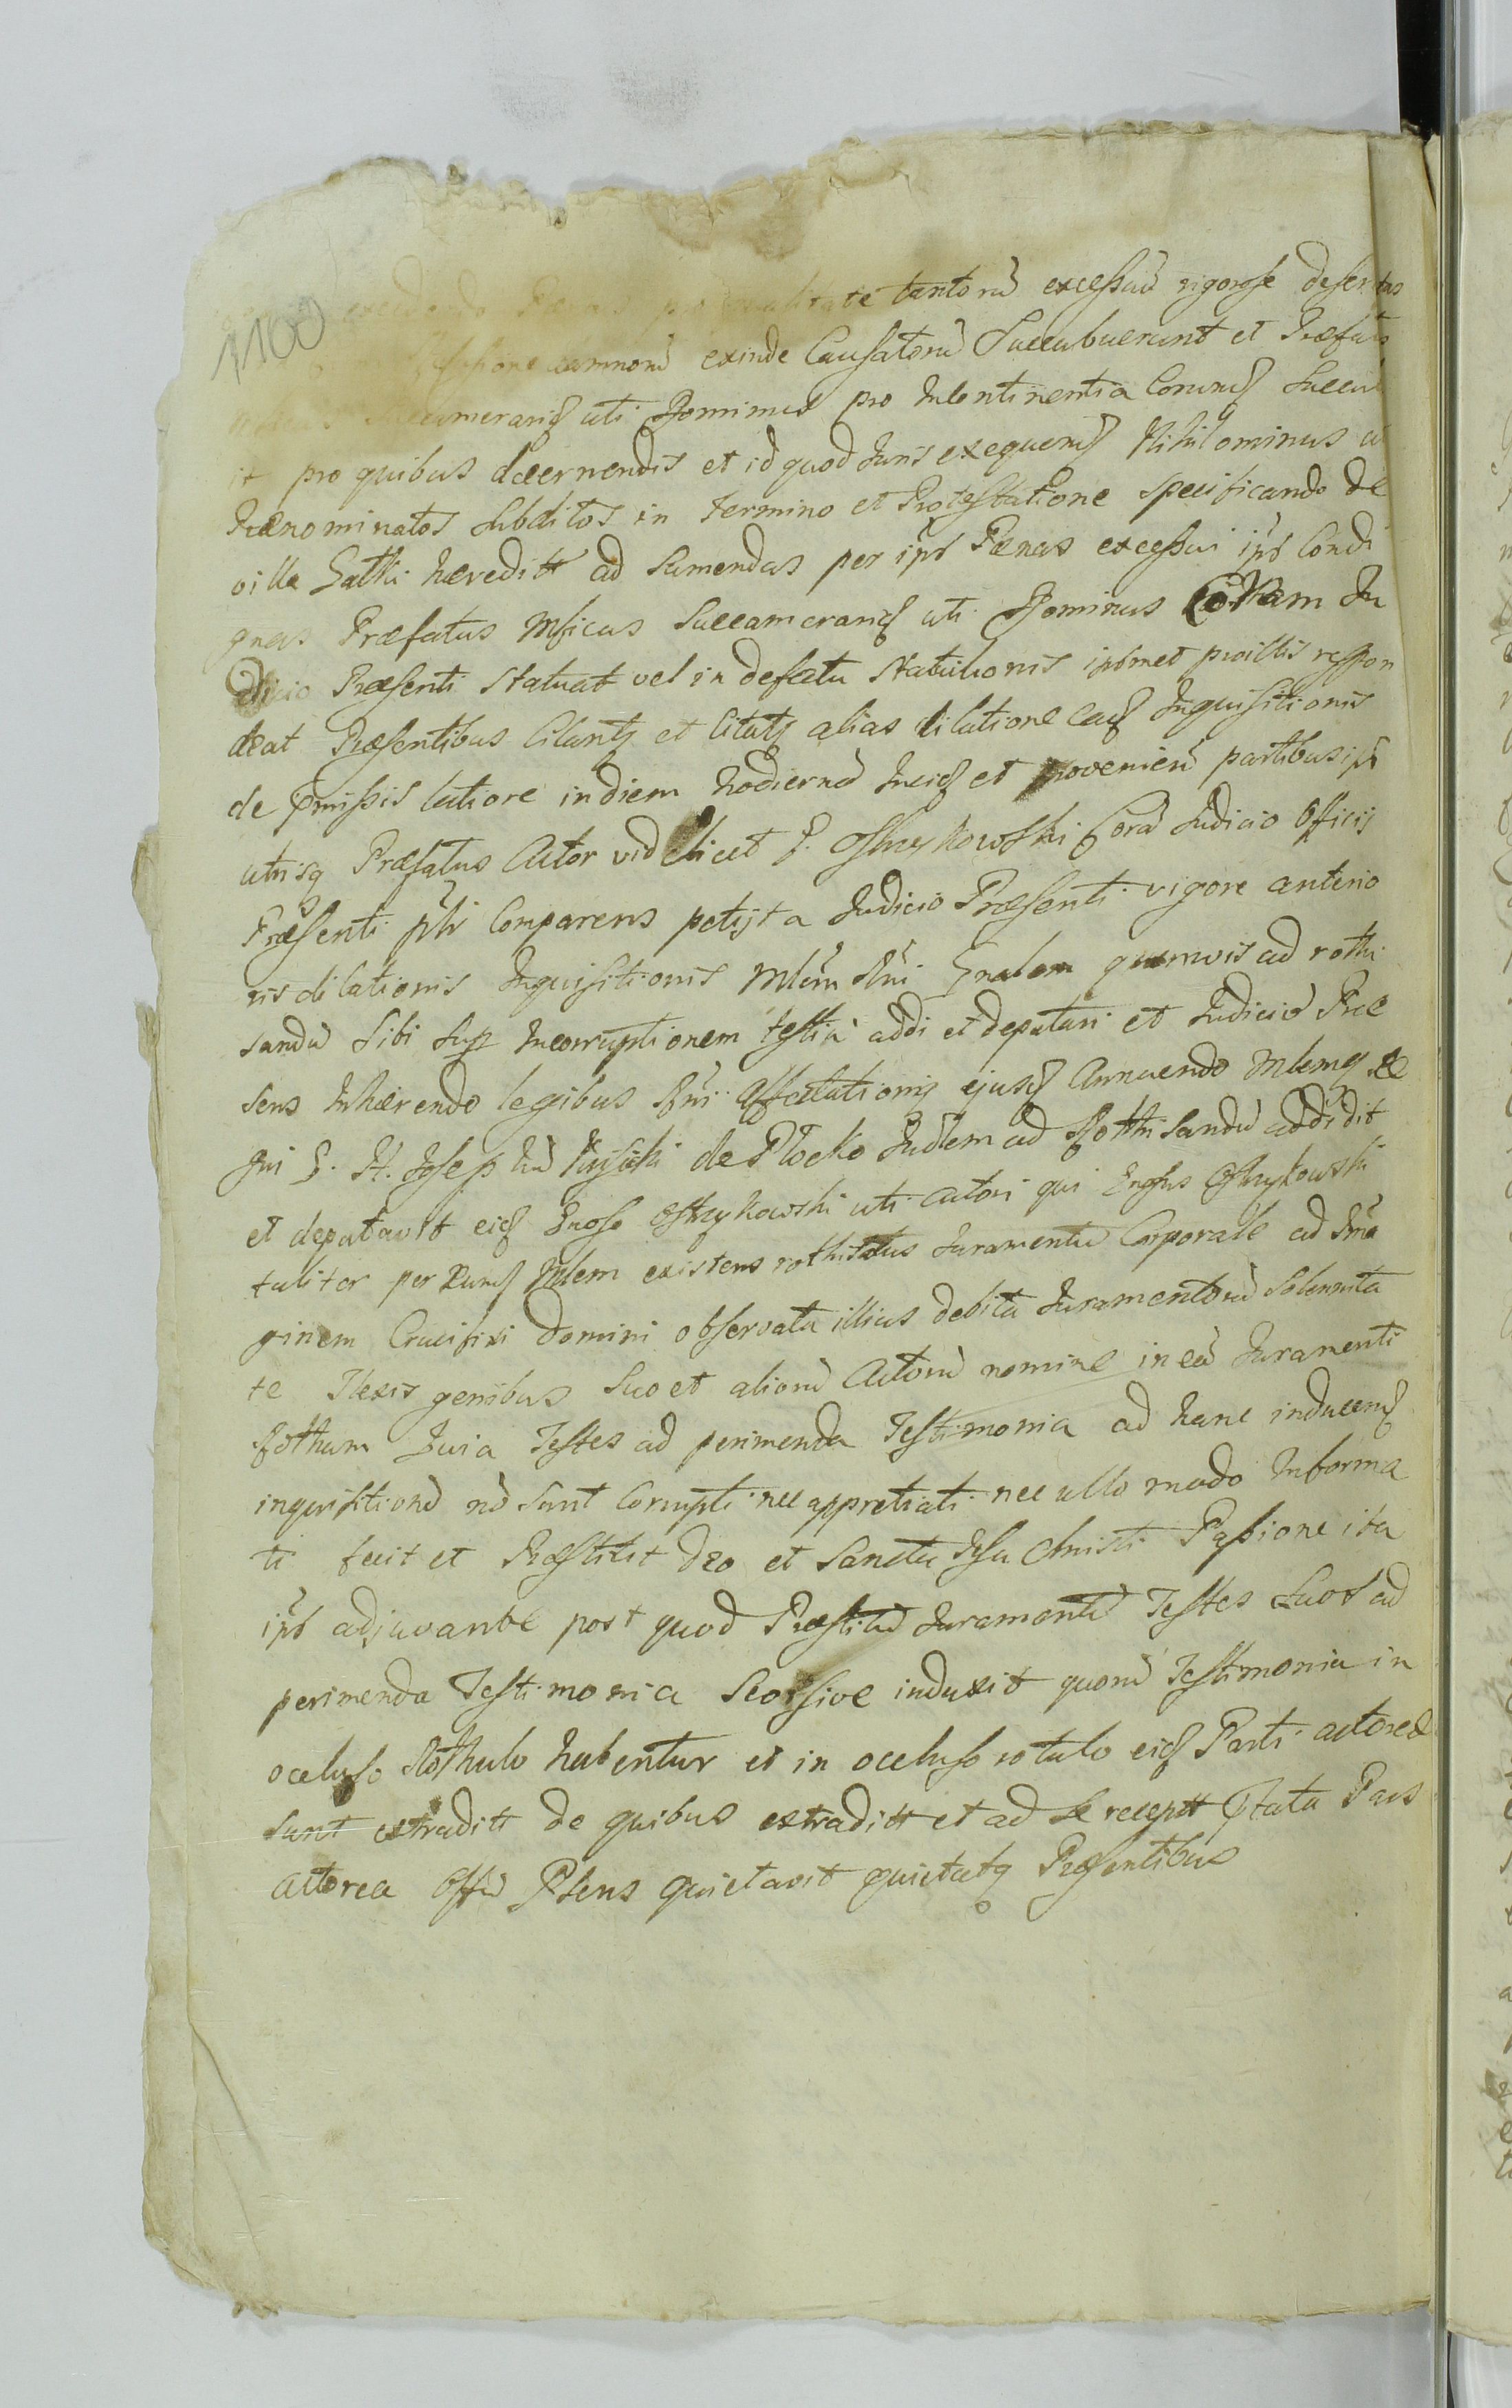 1100
tantorũ excessuũ rigorose desertas
exinde Causatorũ Succubuerunt et Præfat
uti Dominus pro Incontinentia Eorund Succub
it pro quibus decernendis et id quod Juris exequend Nihilominus ut
Prænominatos Subditos in Termino et Protestatione specificando de
villa Satki hæreditt ad Sumendas per ips Pænas excessui ips Condi
gnas Præfatus Mficus Succamerariq uti Dominus Coram Ju
dicio Præsenti Statuat vel in defectu Statuitionis ipsmet pro illis respon
deat Præsentibus Citantq et Citatq alias dilatione eaq Inquisitionis
de pmissis latiore in diem hodiernũ Inciq et provenienũ partibus ips
utrisq Præfatus Actor videlicet G. Ostrzykowski Corã Judicio Officij
Præsenti plr Comparens petijt a Judicio Præsenti vigore anterio
ris dilationis Inquisitionis Mlem Rni Gnalem quamvis ad rothi
sandũ Sibi Sup Incorruptionem testiũ addi et deputari et Judiciũ Præ
sens Inhærendo legibus Rni Affectationiq ejusd Annuendo Mlemq Re
gni G. N. Josephũ de Plocko Judlem ad Rothisandũ addidit
et deputavit eid Gnoso Ostrzykowski uti actori qui Gnosus Ostrzykowski
taliter per Eund Mlem existens rothisatus Juramentũ Corporale ad Ima
ginem Crucifixi Domini observata illius debita Juramentorũ Solennita
te Flexis genibus Suo et aliorũ Actorũ nomine in eã Juramenti
Rotham Quia Testes ad perimenda Testimonia ad hanc inducend
inquisitionẽ nõ sunt Corrupti nec appretiati nec ullo modo Informa
ti fecit et Præstitit Deo et Sancta Jesu Christi Passione ita
ips adjuvante post quod Præstitũ Juramentũ Testes Suos ad
perimenda Testimonia Seorsive induxit quorũ Testimonia in
occluso Rothulo habentur et in occluso rotulo eid Parti actoreæ
sunt extraditt de quibus extraditt et ad Se receptt Ptata Pars
actorea Offũ Psens quietavit quietatq Præsentibus